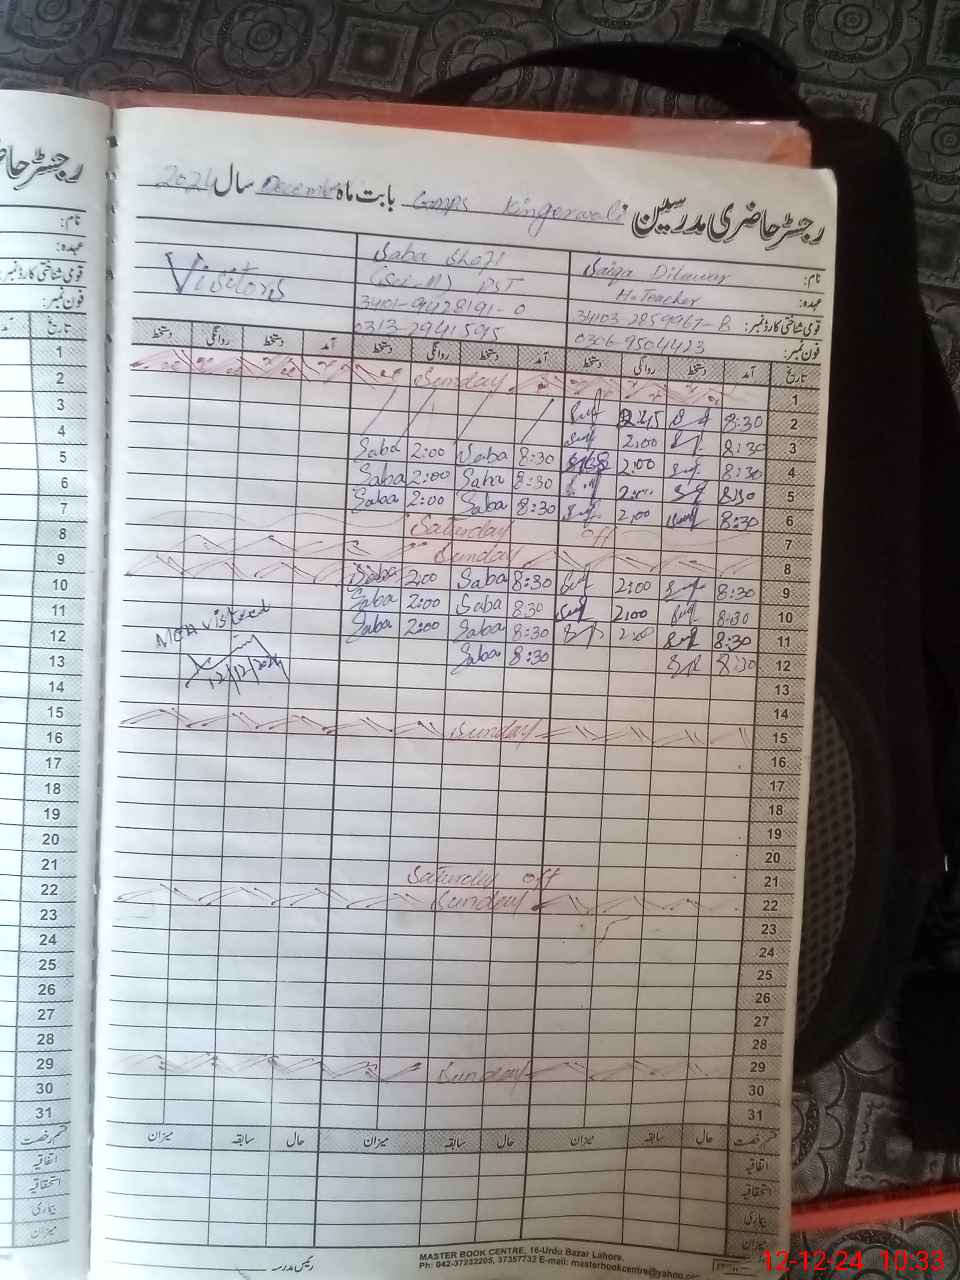 رجسٹر حاضری مدرسین GGMPS Kingerwali بابت ماہ December سال 2024
نام: Saiqa Dilawar Saba Shafi Visitors
عہدہ: H-Teacher PST
قومی شناختی کارڈ نمبر: 34103-2859967-8
فون نمبر: 0306-9504423 0313-2941595
تاریخ آمد دستخط روانگی دستخط آمد دستخط روانگی دستخط آمد دستخط روانگی دستخط
1 Sunday
2 8:30 2:45
3 8:30 2:00
4 8:30 2:00 8:30 Saba 2:00 Saba
5 8:30 8:30 Saba 2:00 Saba
6 8:30 2:00 8:30 Saba 2:00 Saba
7 Saturday off
8 Sunday
9 8:30 2:00 8:30 Saba 2:00 Saba
10 8:30 2:00 830 Saba 2:00 Saba
11 8:30 2:00 8:30 Saba 2:00 Saba
12 8:30 8:30 Saba
MEA visited
12/12/2024
13
14
15 Sunday
16
17
18
19
20
21 Saturday off
22 Sunday
23
24
25
26
27
28
29 Sunday
30
31
قسم رخصت حال سابقہ میزان حال سابقہ میزان حال سابقہ میزان
اتفاقیہ
استحقاقیہ
بیماری
میزان
رئیس مدرسہ
MASTER BOOK CENTRE, 16-Urdu Bazar Lahore.
Ph: 042-37232205, 37357733 E-mail: masterbookcentre@yahoo
رجسٹر حا
نام:
عہدہ:
قومی شناختی کارڈ نمبر:
فون نمبر:
تاریخ
1
2
3
4
5
6
7
8
9
10
11
12
13
14
15
16
17
18
19
20
21
22
23
24
25
26
27
28
29
30
31
قسم رخصت
اتفاقیہ
استحقاقیہ
بیماری
میزان
12-12-24 10:33